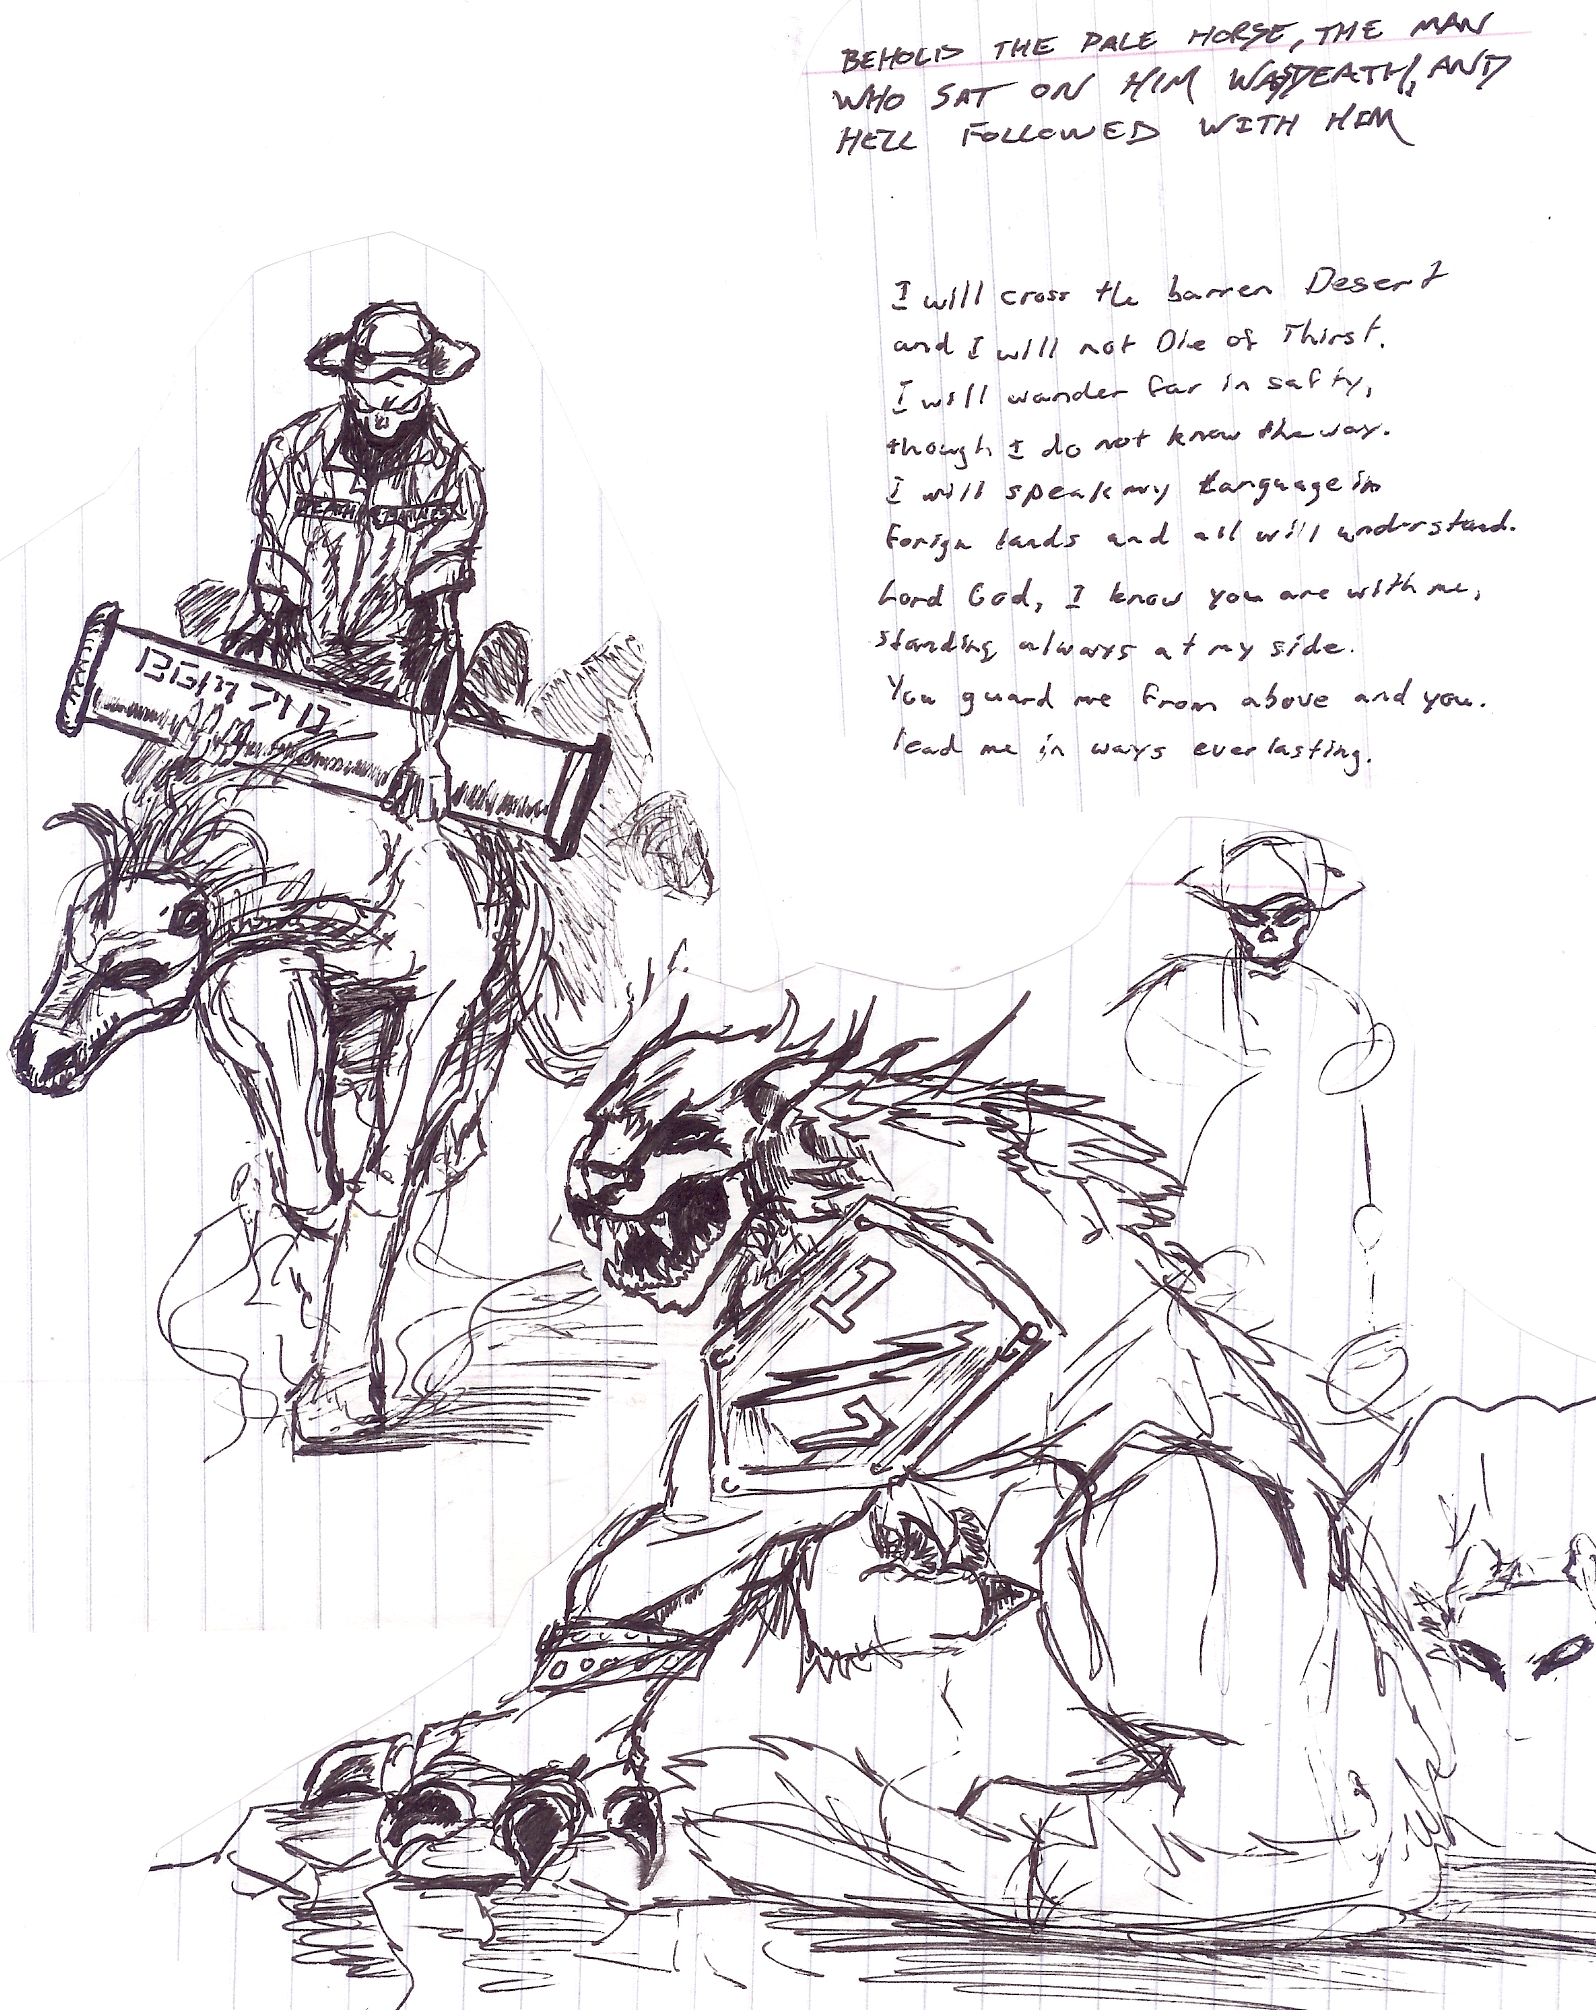 BEHOLD THE PALE HORSE, THE MAN
WHO SAT ON HIM WAS DEATH, AND
HELL FOLLOWED WITH HIM
I will cross the barren Desert
and I will not Die of Thirst.
I will wander far in safty,
though I do not know the way.
I will speak my Language in
Forign lands and all will understand.
Lord God, I know you are with me,
standing always at my side.
You guard me from above and you.
lead me in ways everlasting.
DEATH
1